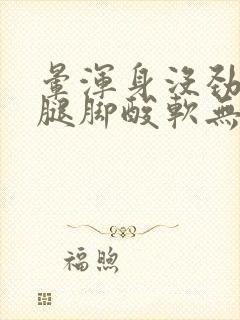 暈渾身沒勁
腿脚酸軟無
福煦